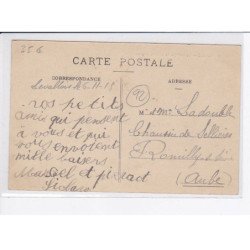 256
CARTE POSTALE
CORRESPONDANCE
ADRESSE
Levallois le 5-11-19
vos petits
amis qui pensent
à vous et qui
vous envoient
mille baisers
Marcel et
92
M Sadouble
Chaussée de Sellières
Romilly
(Aube)